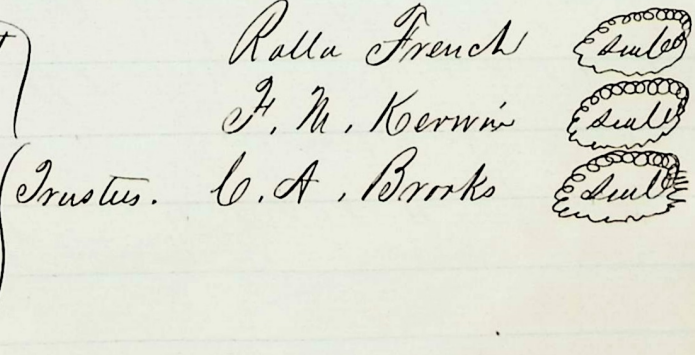 Rolla French Seal
F. M. Kerwin Seal
Trustees. C. A. Brooks Seal